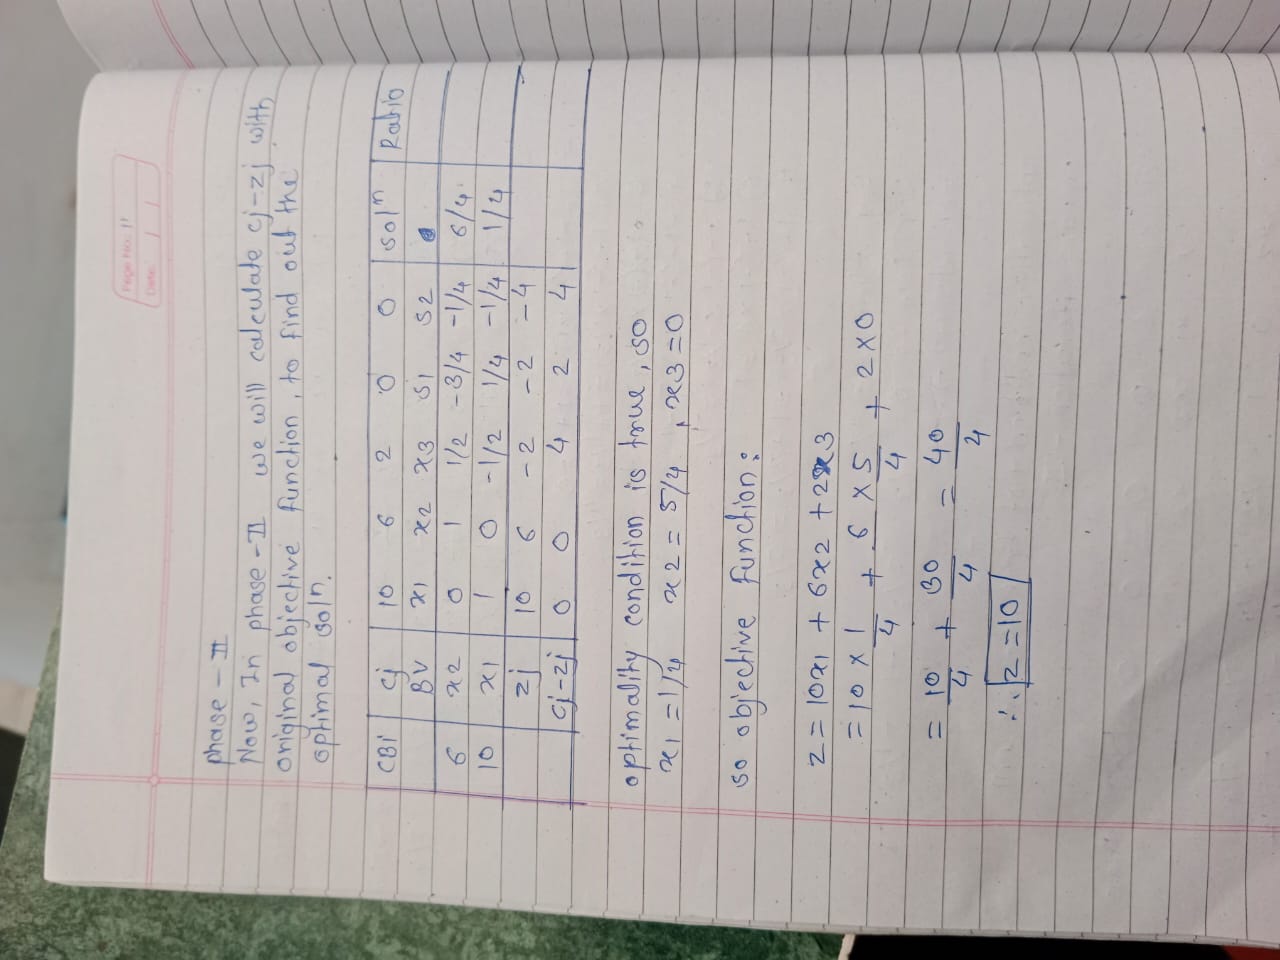 Page No. 11
Date: / /
phase - II
Now, In phase-II we will calculate cj-zj with
original objective function, to find out the
optimal soln.
CBi Cj 10 6 2 0 0 soln Ratio
BV x1 x2 x3 s1 s2
6 x2 0 1 1/2 -3/4 -1/4 5/4
10 x1 1 0 -1/2 1/4 -1/4 1/4
zj 10 6 -2 -2 -4
cj-zj 0 0 4 2 4
optimality condition is true, so
x1 = 1/4 x2 = 5/4 , x3 = 0
so objective function:
z = 10x1 + 6x2 + 2x3
= 10 x 1/4 + 6 x 5/4 + 2 x 0
= 10/4 + 30/4 = 40/4
∴ z = 10